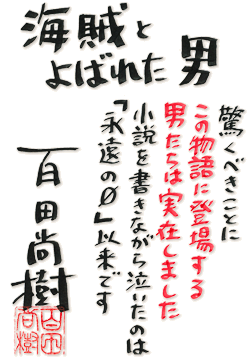 海賊と
よばれた男
驚くべきことに
この物語に登場する
男たちは実在しました
小説を書きながら泣いたのは
「永遠の0」以来です
百田尚樹
百田
尚樹